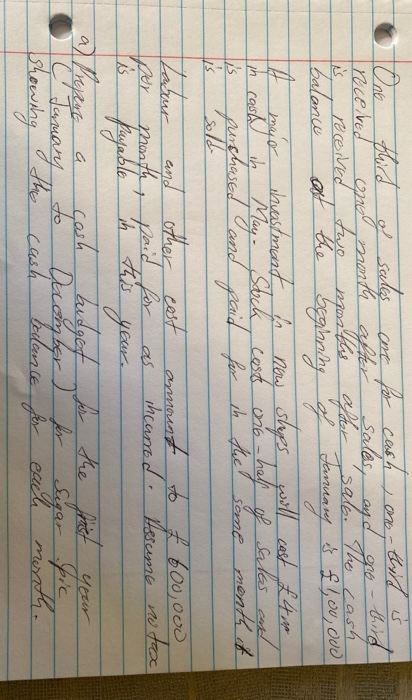 One third of sales are for cash, one-third is
received one month after sales, and one-third
is received two months after sale. The cash
balance at the beginning of January is £1,00,000
A major investment in new shops will cost £4m
in cash in May. Stock costs one-half of sales and
is purchased and paid for in the same month it
is sold
Labur and other cost amount to £600,000
per month, paid for as incurred. Assume no tax
is payable in this year.
a) Prepare a cash budget for the first year
(January to December) for Sugar
showing the cash balance for each month.